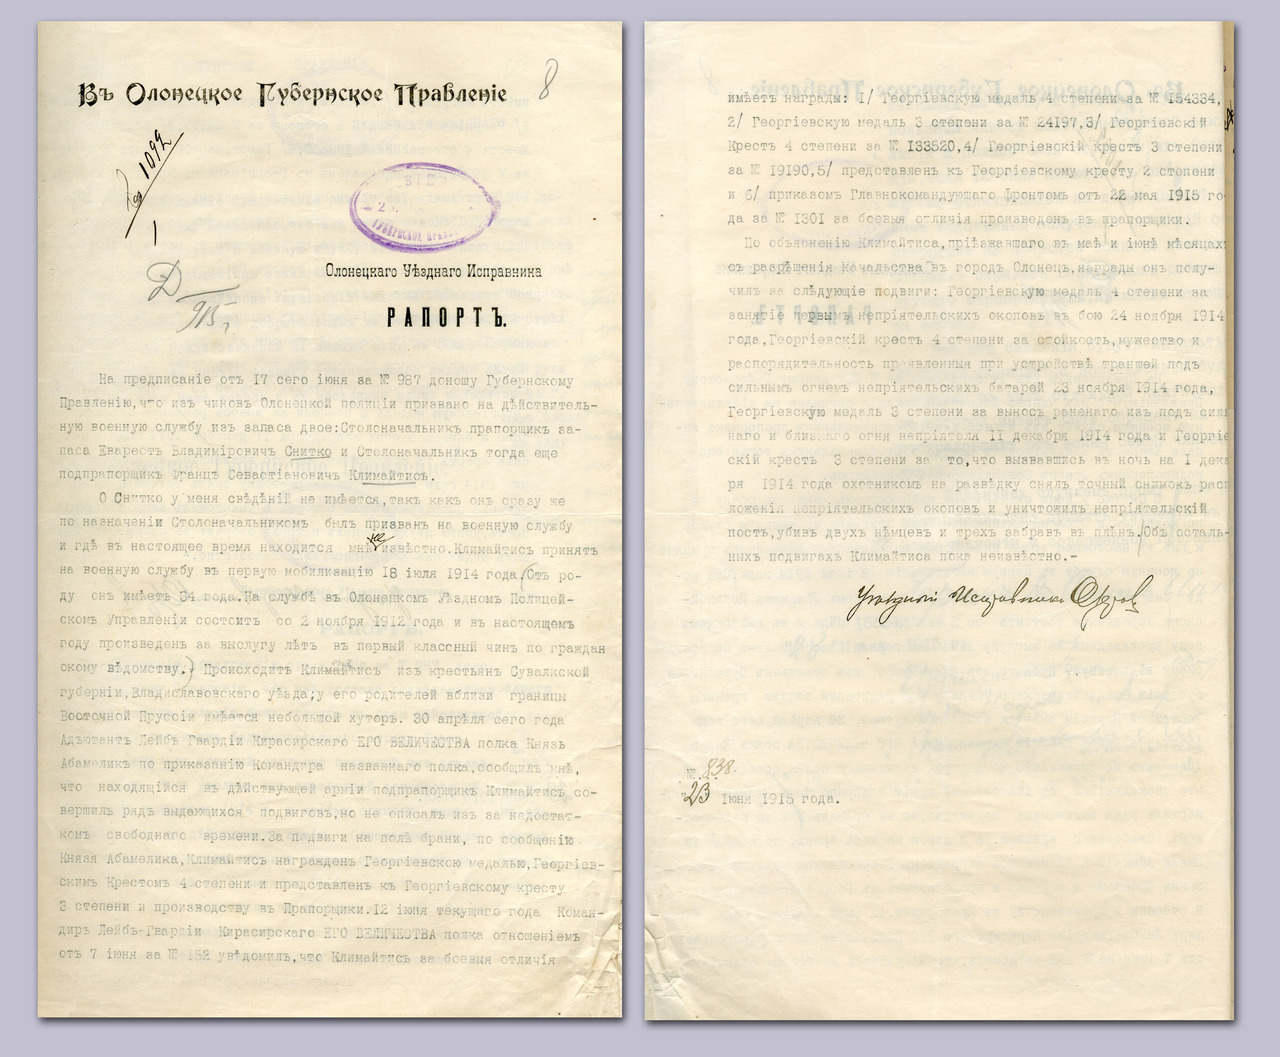 Въ Олонецкое Губернское Правленіе
8
1092
1
ГУБЕРНСКОЕ
Олонецкаго Уѣзднаго Исправника
РАПОРТЪ.
На предписаніе отъ 17 сего іюня за № 987 доношу Губернскому
Правленію,что изъ чиновъ Олонецкой полиціи призвано на дѣйствитель-
ную военную службу изъ запаса двое:Столоначальникъ прапорщикъ за-
паса Еварестъ Владиміровичъ Снитко и Столоначальникъ тогда еще
подпрапорщикъ Францъ Севастіановичъ Климайтисъ.
О Снитко у меня свѣдѣній не имѣется,такъ какъ онъ сразу же
по назначеніи Столоначальникомъ былъ призванъ на военную службу
и гдѣ въ настоящее время находится мнѣ не извѣстно.Климайтисъ принятъ
на военную службу въ первую мобилизацію 18 іюля 1914 года.(Отъ ро-
ду онъ имѣетъ 34 года.На службѣ въ Олонецкомъ Уѣздномъ Полицей-
скомъ Управленіи состоитъ со 2 ноября 1912 года и въ настоящемъ
году произведенъ за выслугу лѣтъ въ первый классный чинъ по граждан
скому вѣдомству.) Происходитъ Климайтисъ изъ крестьянъ Сувалкской
губерніи,Владиславовскаго уѣзда;у его родителей вблизи границы
Восточной Пруссіи имѣется небольшой хуторъ. 30 апрѣля сего года
Адъютантъ Лейбъ Гвардіи Кирасирскаго ЕГО ВЕЛИЧЕСТВА полка Князь
Абамеликъ по приказанію Командира названнаго полка,сообщилъ мнѣ,
что находящійся въ дѣйствующей арміи подпрапорщикъ Климайтисъ со-
вершилъ рядъ выдающихся подвиговъ,но не описалъ ихъ за недостат-
комъ свободнаго времени.За подвиги на полѣ брани, по сообщенію
Князя Абамелика,Климайтисъ награжденъ Георгіевскою медалью,Георгіев-
скимъ Крестомъ 4 степени и представленъ къ Георгіевскому кресту
3 степени и производству въ Прапорщики.12 іюня текущаго года Коман-
диръ Лейбъ-Гвардіи Кирасирскаго ЕГО ВЕЛИЧЕСТВА полка отношеніемъ
отъ 7 іюня за № 152 увѣдомилъ,что Климайтисъ за боевыя отличія
имѣетъ награды: 1/ Георгіевскую медаль 4 степени за № 154334,
2/ Георгіевскую медаль 3 степени за № 24197,3/ Георгіевскій
Крестъ 4 степени за № 133520,4/ Георгіевскій крестъ 3 степени
за № 19190,5/ представленъ къ Георгіевскому кресту 2 степени
и 6/ приказомъ Главнокомандующаго фронтомъ отъ 22 мая 1915 го-
да за № 1301 за боевыя отличія произведенъ въ прапорщики.
По объясненію Климайтиса,пріѣзжавшаго въ маѣ и іюнѣ мѣсяцахъ
съ разрѣшенія Начальства въ городъ Олонецъ,награды онъ полу-
чилъ за слѣдующіе подвиги: Георгіевскую медаль 4 степени за
занятіе первымъ непріятельскихъ окоповъ въ бою 24 ноября 1914
года,Георгіевскій крестъ 4 степени за стойкость,мужество и
распорядительность проявленныя при устройствѣ траншей подъ
сильнымъ огнемъ непріятельскихъ батарей 23 ноября 1914 года,
Георгіевскую медаль 3 степени за выносъ раненаго изъ подъ силь
наго и близкаго огня непріятеля 11 декабря 1914 года и Георгіе
скій крестъ 3 степени за то,что вызвавшись въ ночь на 1 дека
ря 1914 года охотникомъ на развѣдку снялъ точный снимокъ расп
ложенія непріятельскихъ окоповъ и уничтожилъ непріятельскій
постъ,убивъ двухъ нѣмцевъ и трехъ забравъ въ плѣнъ.Объ осталь-
ныхъ подвигахъ Климайтиса пока неизвѣстно.-
Уѣздный Исправникъ
№ 838.
"23 Іюня 1915 года.